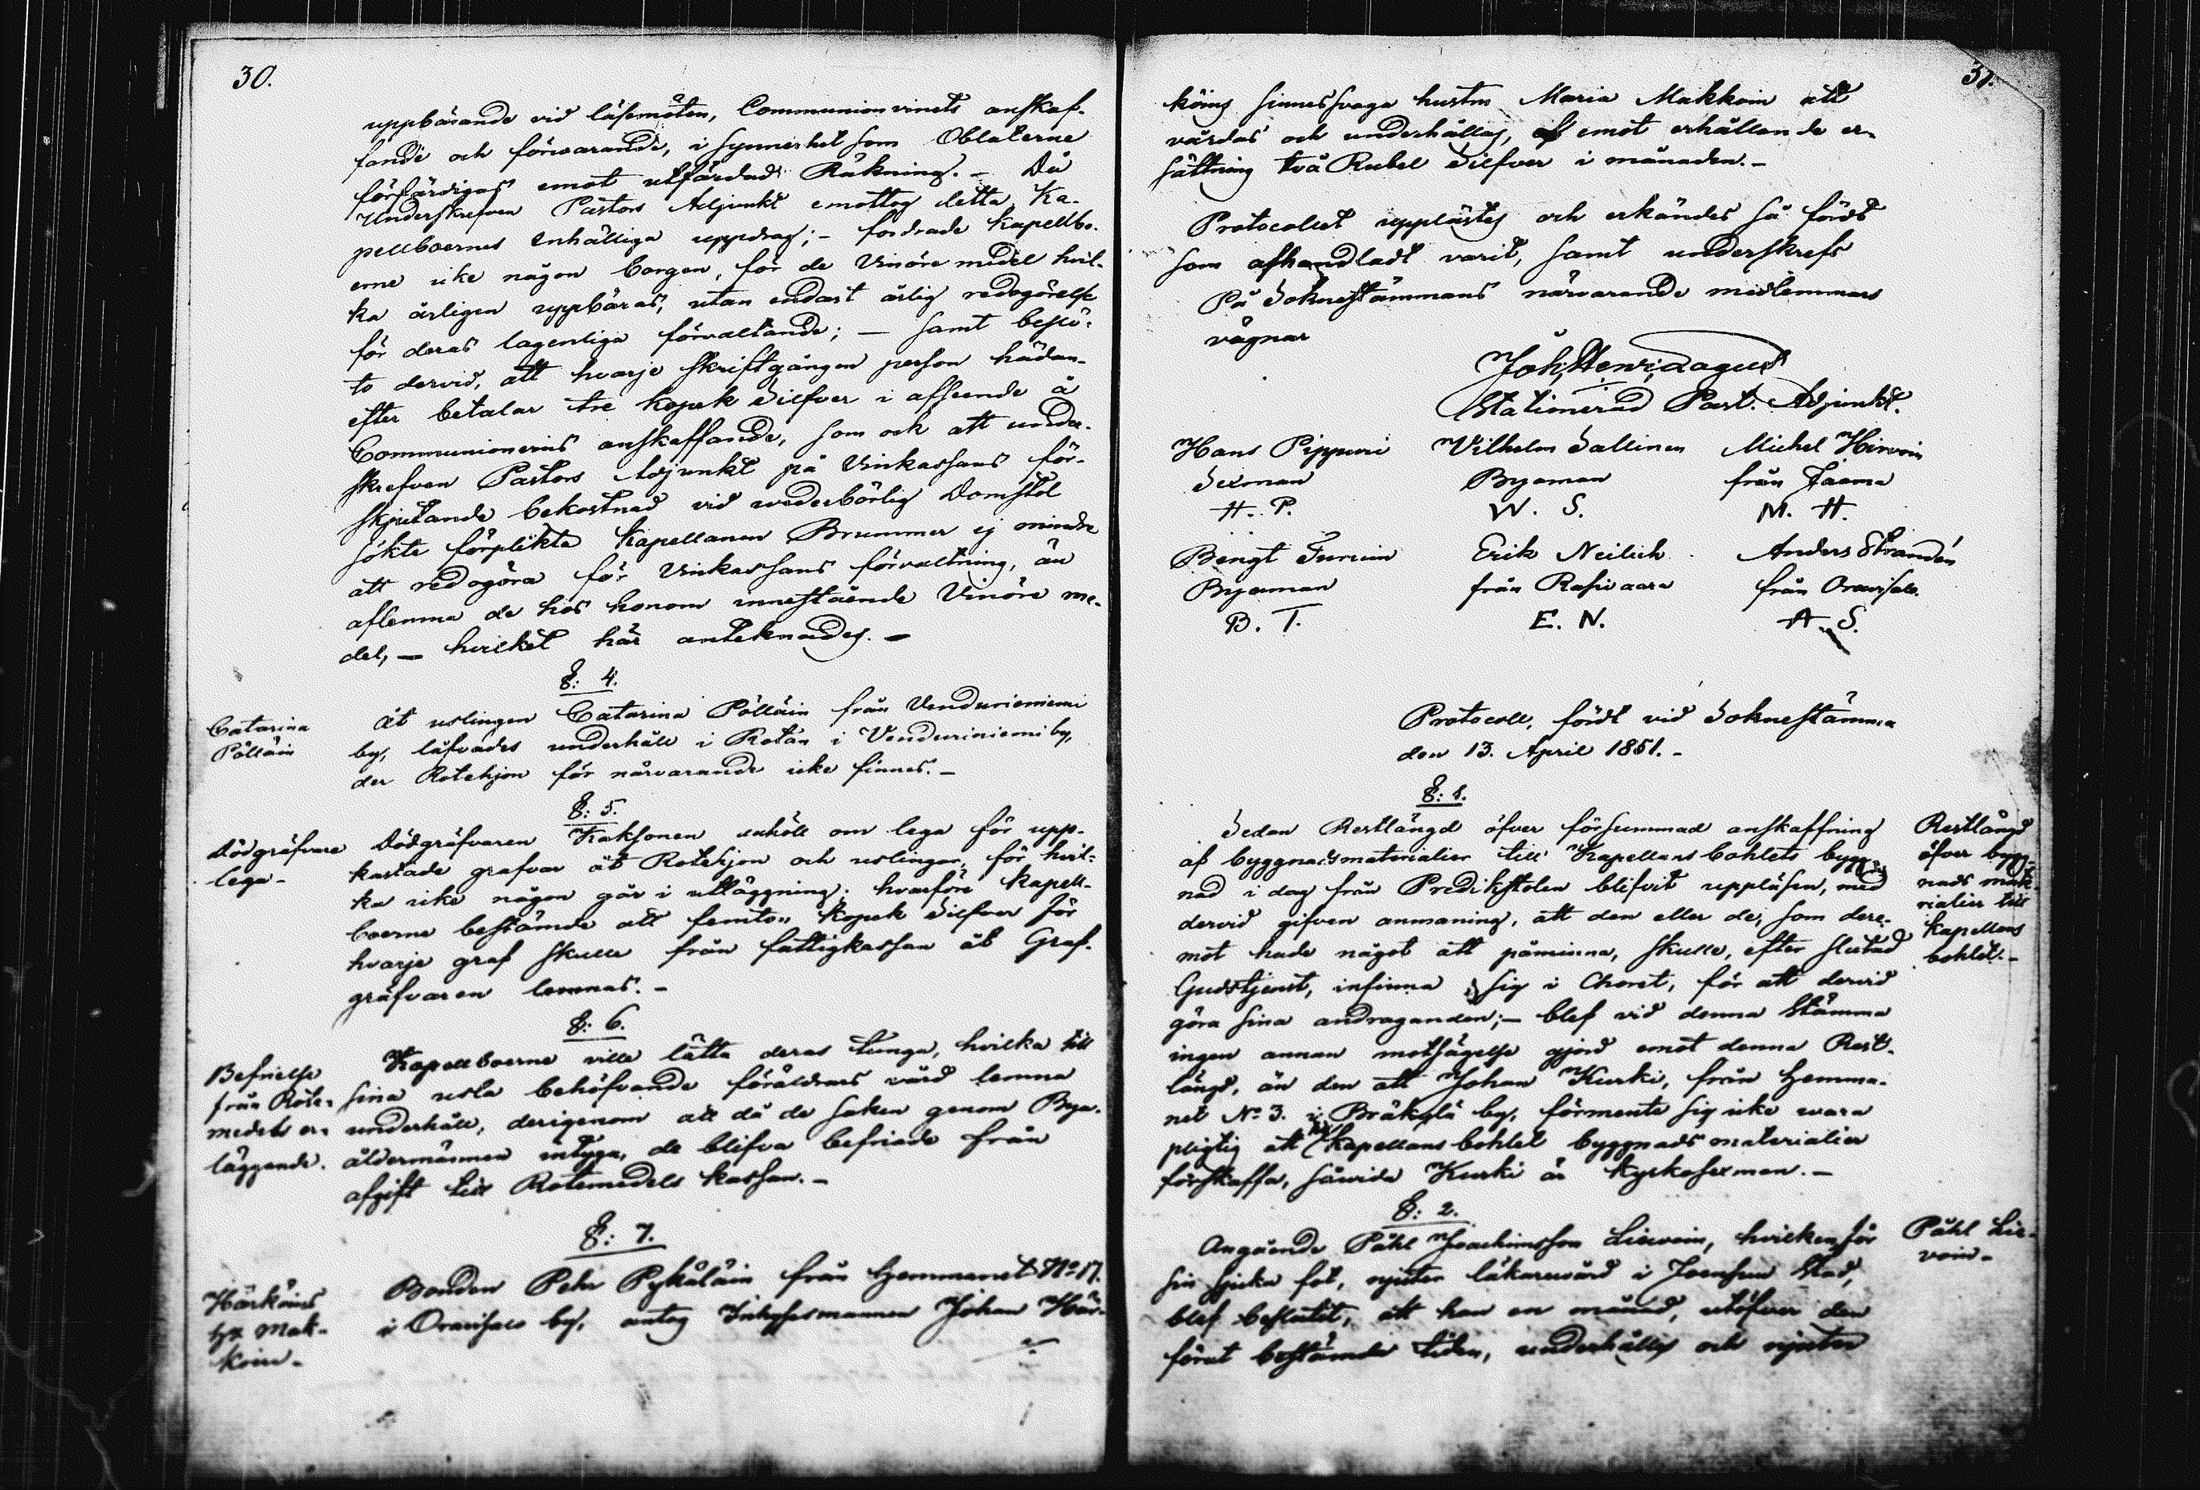 30.
uppbärande vid läsemöten, Communionvinets anskaf-
fande och förwarande, i synnerhet som Oblaterne
förfärdigas emot utfärdad Räkning. – Då
Underskrefven Pastors Adjunkt emottog detta Ka-
pellboernes enhälliga uppdrag; – fordrade kapellbo-
erne icke någon borgen, för de Vinöre medel hvil-
ka årligen uppbäras, utan endast årlig redogörelse
för deras lagenliga förvaltande; – samt beslö-
to dervid, att hvarje skriftgången person hädan-
efter betalar tre kopek Silfver i afseende å
Communionvins anskaffande, som och att under-
skrefven Pastors Adjunkt på Vinkassans för-
skjutande bekostnad vid wederbörlig Domstol
sökte förplikta Kapellanen Brummer ej mindre
att redogöra för Vinkassans förvaltning, än
aflemna de hos honom innestående Vinöre me-
del, – hvilket här antecknades. –
§: 4.
Catarina
Pöllöin
Åt uslingen Catarina Pöllöin från Venduriniemi
by, läfvades underhåll i Rotan i Venduriniemi by,
der Rotehjon för närvarande icke finnes. –
§: 5.
Dödgräfvare
lega –
Dödgräfvaren Kaksonen anhöll om lega för upp-
kastade grafvar åt Rotehjon och uslingar, för hvil-
ka icke någon går i utläggning; hvarföre kapell-
boerne bestämde att femton kopek Silfver för
hvarje graf skulle från fattigkassan åt Graf-
gräfvaren lemnas. –
§: 6.
Befrielse
från Rote-
medels er-
läggande.
Kapellboerne ville lätta deras tunga, hvilka till
sina usla behöfvande föräldrars vård lemna
underhåll, derigenom att då de saken genom Bya-
åldermännen intyga, de blifva befriade från
afgift till Rotemedels kassan. –
§: 7.
Härköins
h:u Mak-
koin –
Bonden Pehr Pykäläin från Hemmanet No 17.
i Oravisalo by, antog Inhysesmannen Johan Här-
31.
köins sinnessvaga hustru Maria Makkoin att
vårdas och underhållas, emot erhållande er-
sättning två Rubel Silfver i månaden. –
Protocollet upplästes och erkändes så fördt
som afhandladt varit, samt underskrefs
På Soknestämmans närvarande medlemmars
vägnar
Joh. Henr.
Stationerad Past. Adjunkt.
Hans Pippuri Vilhelm Sallinen Michel Hirvoin
Sexman Byaman från
H. P. W. S. M. H.
Bengt Turuin Erik Neilick Anders Strandén
Byaman från Rasivaara från Oravisalo.
B. T. E. N. A. S.
Protocoll, fördt vid Soknestämma
den 13. April 1851. –
§: 1.
Sedan Restlängd öfver försummad anskaffning
af byggnadsmaterialier till Kapellansbohlets bygg-
nad i dag från Predikstolen blifvit uppläsen, med
dervid gifven anmaning, att den eller de, som dere-
mot hade något att påminna, skulle, efter slutad
Gudstjenst, infinna sig i Choret, för att dervid
göra sina andraganden; – blef vid denna Stämma
ingen annan motsägelse gjord emot denna Rest-
längd, än den att Johan Kurki, från Hemma-
net No 3. i Bråkylä by, förmente sig icke wara
pligtig att till Kapellans bohlet byggnadsmaterialier
förskaffa, såvida Kurki är kyrkosexman. –
Restlängd
öfver bygg-
nads mate-
rialier till
kapellans
bohlet. –
§: 2.
Angående Påhl Joachimsson Liewoin, hvilken för
sin sjuka fot, njuter läkarevård i Joensuu Stad,
blef beslutit, att han en månad, utöfver den
förut bestämda tiden, underhålles och njuter
Påhl Lie-
voin –